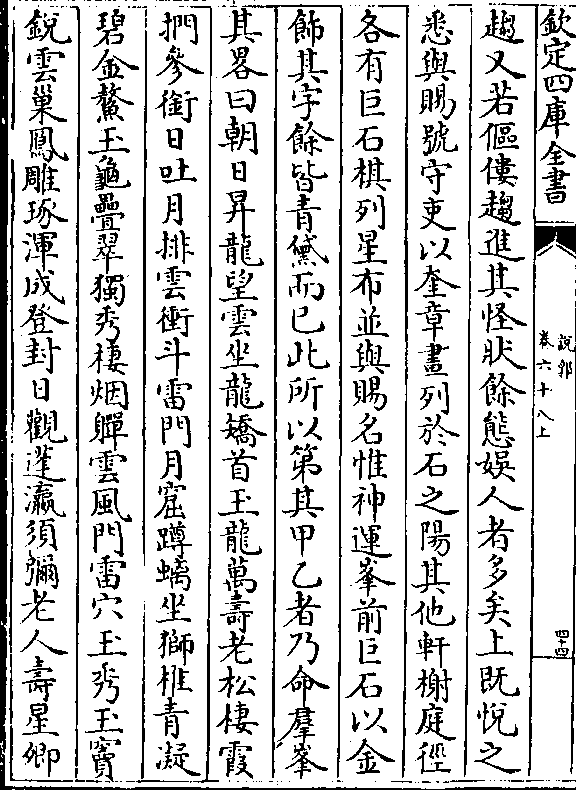 欽定四庫全書
說郛
卷六十八上
四十四
趨又若傴僂趨進其怪狀餘態娛人者多矣上既悅之
悉與賜號守吏以奎章畫列於石之陽其他軒榭庭徑
各有巨石棋列星布並與賜名惟神運峯前巨石以金
飾其字餘皆青黛而已此所以第其甲乙者乃命羣峯
其畧曰朝日昇龍望雲坐龍矯首玉龍萬壽老松棲霞
捫參銜日吐月排雲衝斗雷門月窟蹲螭坐獅椎青凝
碧金鰲玉龜疊翠獨秀棲烟亸雲風門雷穴玉秀玉竇
銳雲巢鳳雕琢渾成登封日觀蓬瀛須彌老人壽星卿